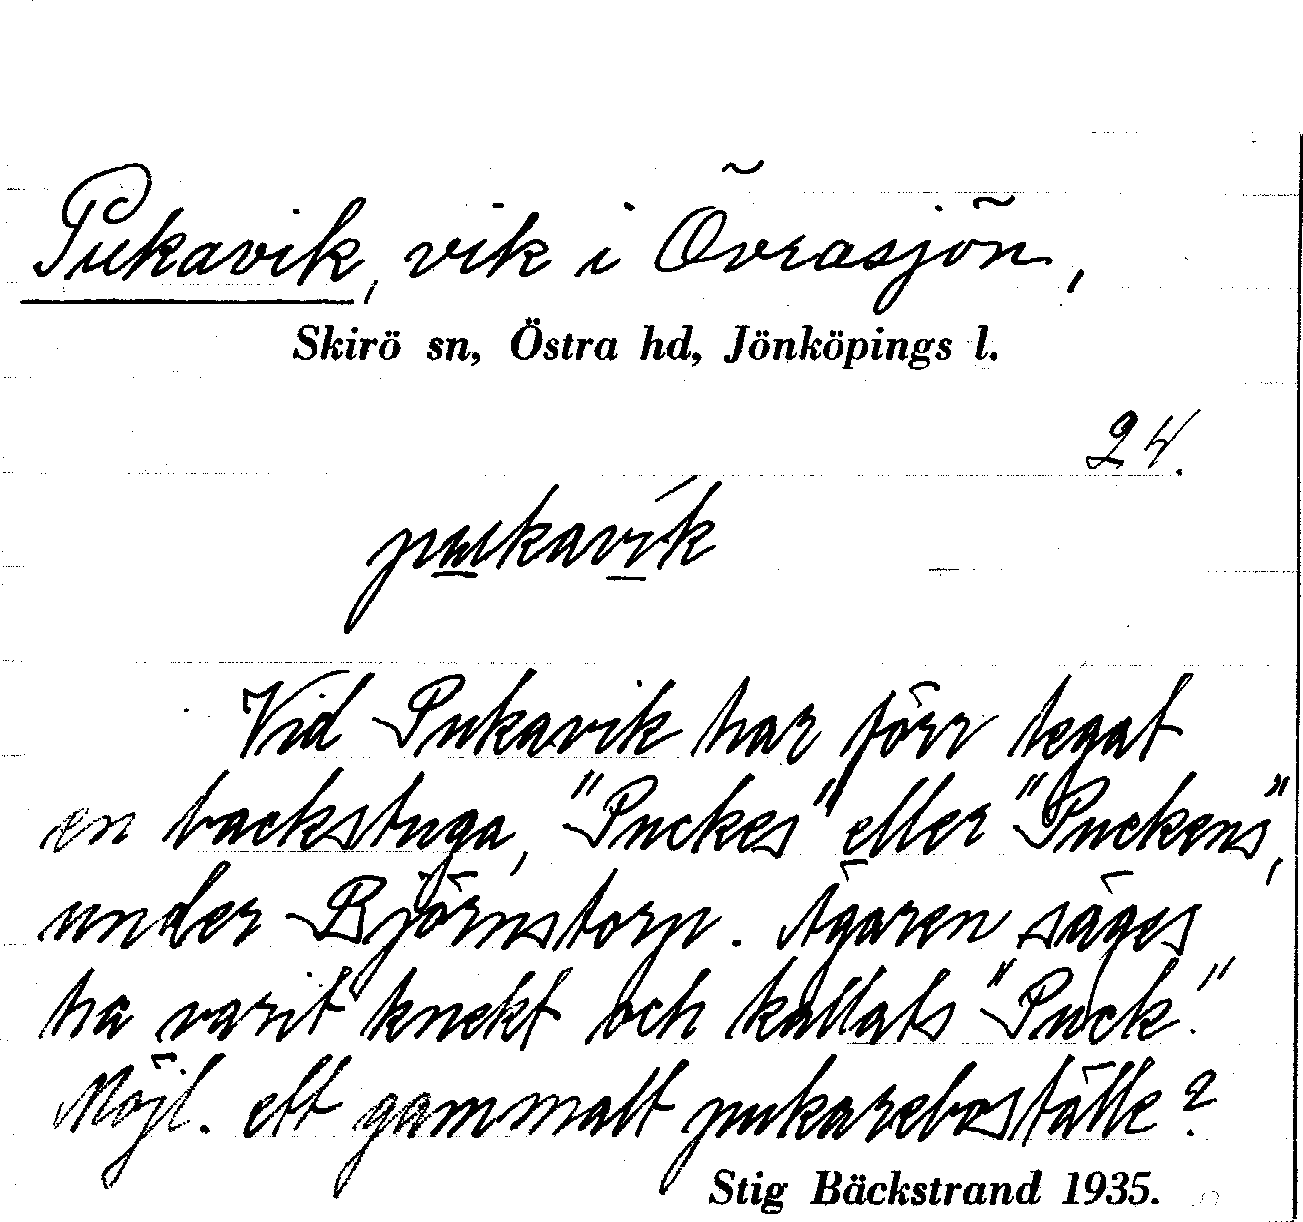 Pukavik, vik i Övrasjön,
Skirö sn, Östra hd, Jönköpings l.
24.
pukavik
Vid Pukavik har förr legat
en backstuga, "Puckes" eller "Puckens",
under Björnstorp. Ägaren säges
ha varit knekt och kallats "Puck".
Möjl. ett gammalt pukareboställe?
Stig Bäckstrand 1935.